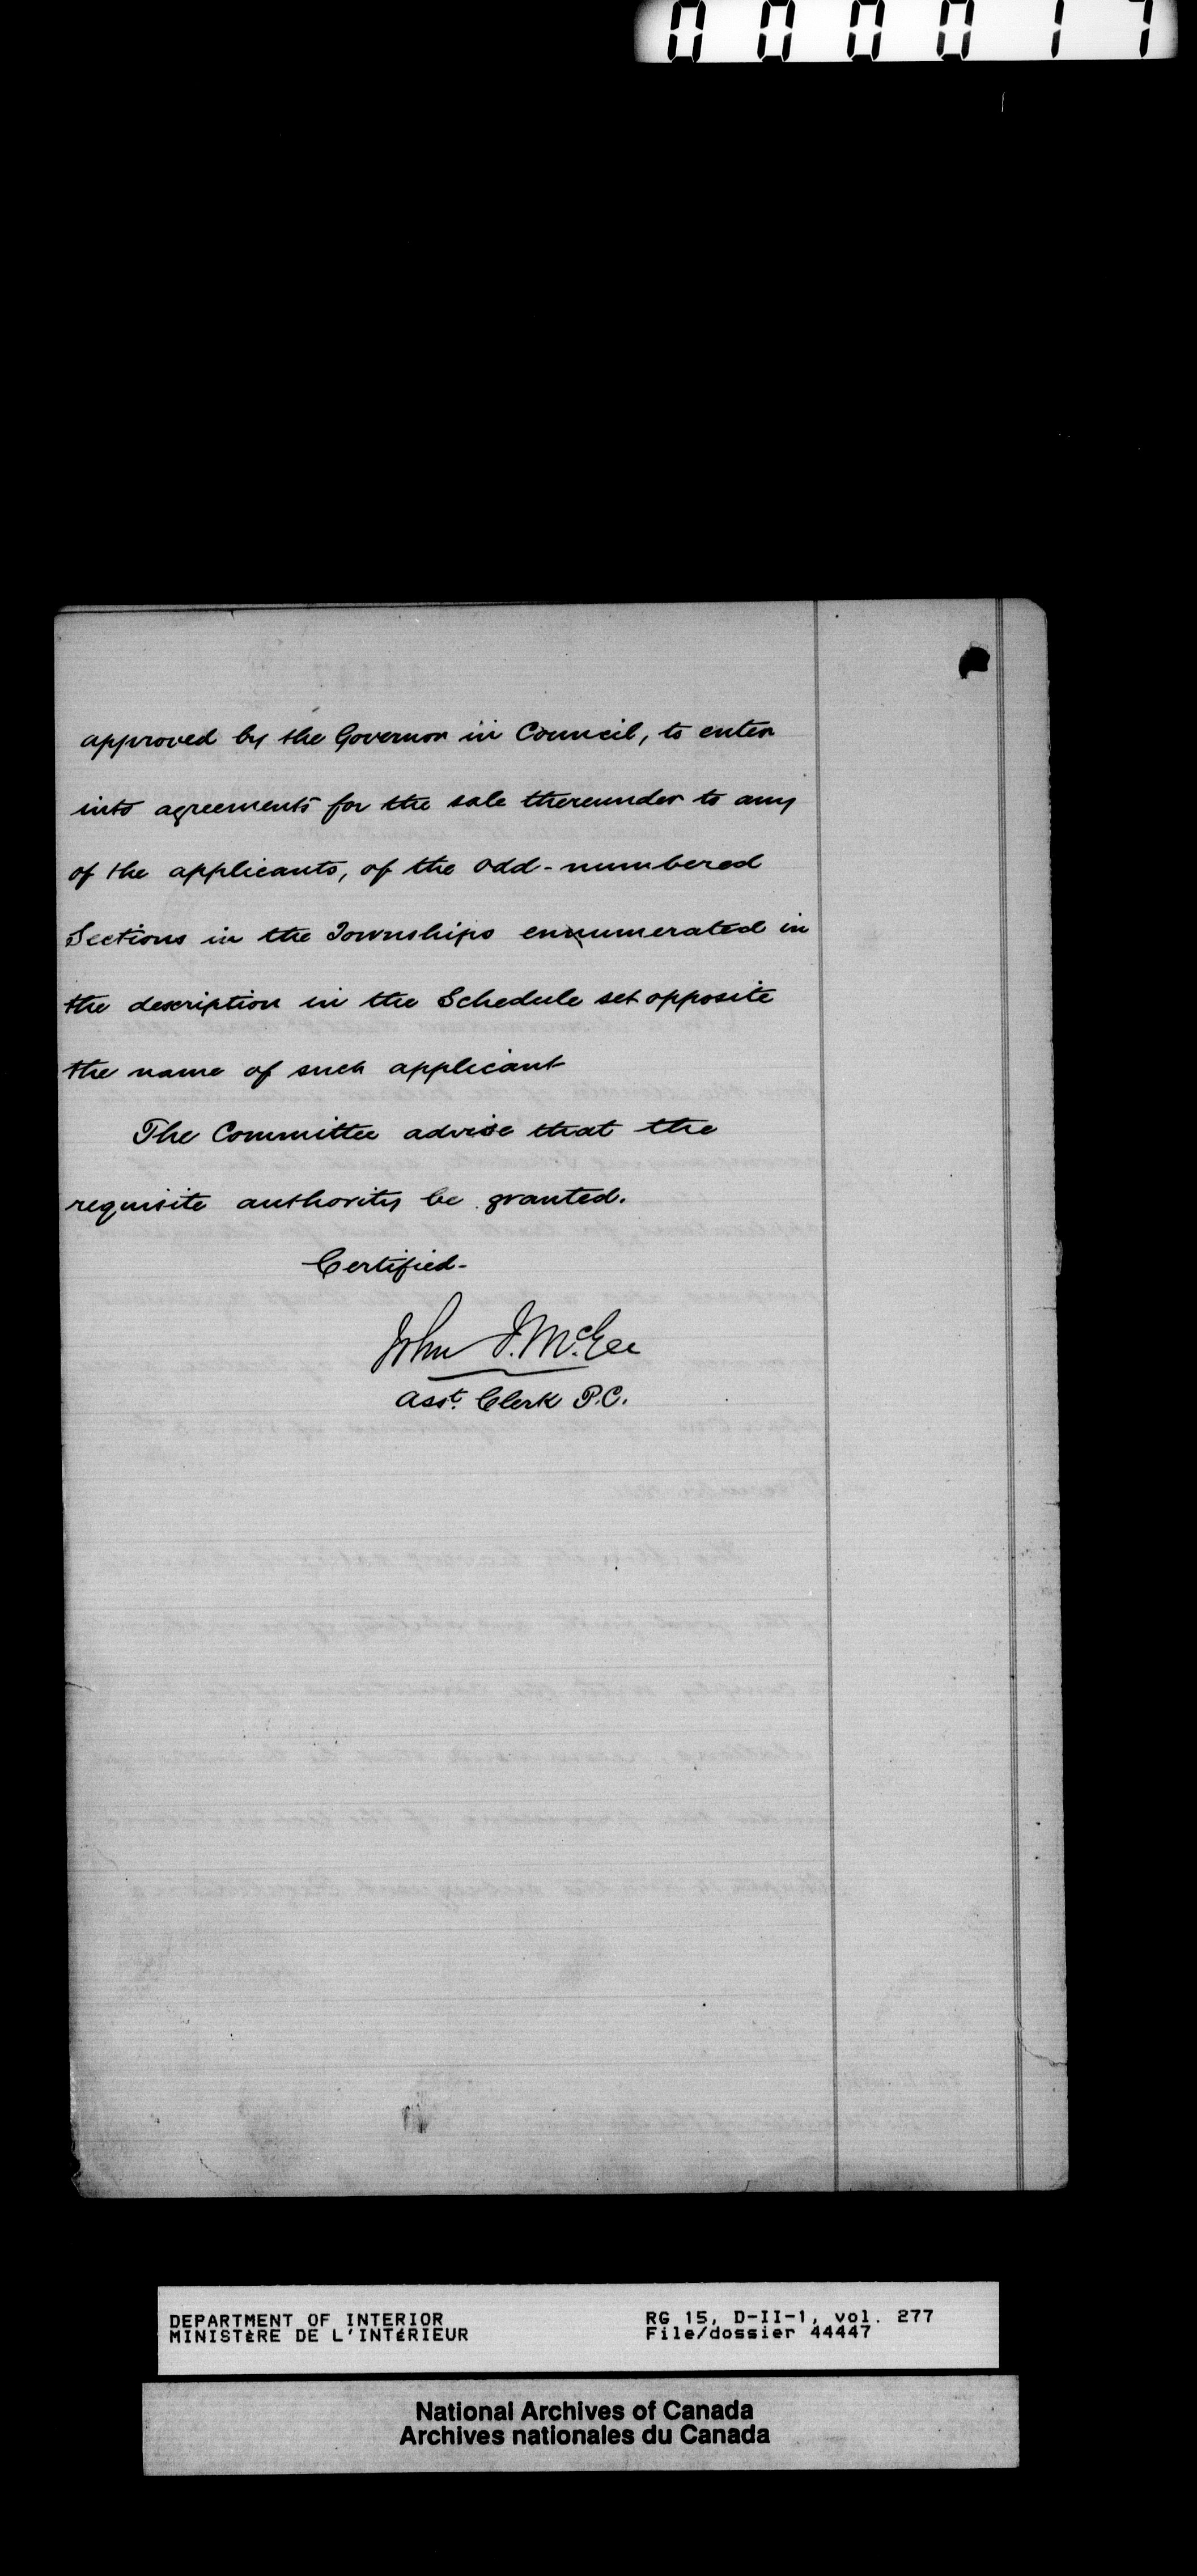 000017
approved by the Governor in Council, to enter
into agreements for the sale thereunder to any
of the applicants, of the odd-numbered
Sections in the Townships ennumerated in
the description in the Schedule set opposite
the name of such applicant
The Committee advise that the
requisite authority be granted.
Certified-
John J. McGee
Asst. Clerk P.C.
DEPARTMENT OF INTERIOR
MINISTÈRE DE L'INTÉRIEUR
RG 15, D-II-1, vol. 277
File/dossier 44447
National Archives of Canada
Archives nationales du Canada